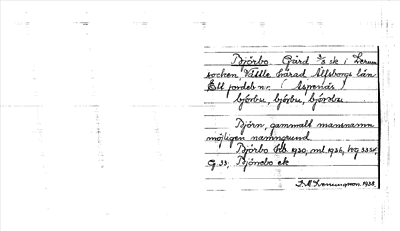 Björbo. Gård 3/8 sk i Lerum
socken, Vättle härad Älfsborgs län
Ett jordeb nr. (Aspenäs)
björbu, björbu, björsbu
Björn, gammalt mansnamn
möjligen namngrund
Björbo 1930, ml 1936, hg 3350,
G 33, Björsbo ek
1938.